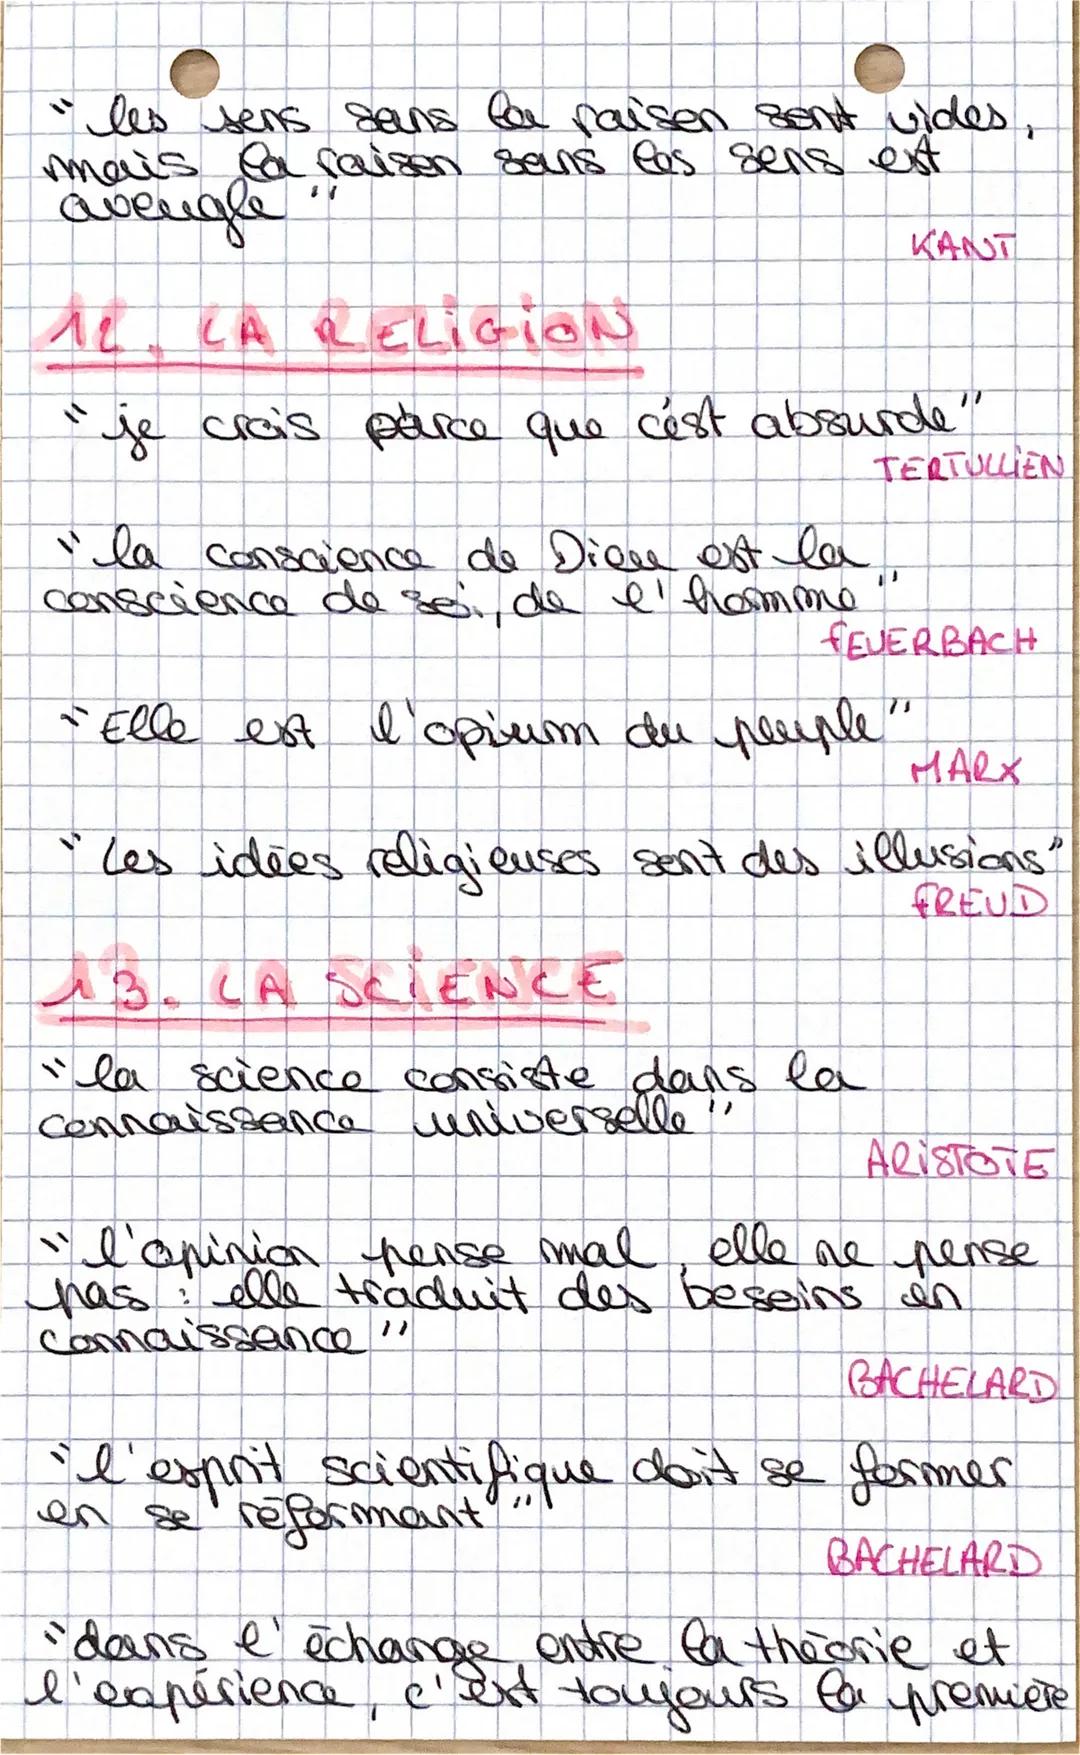 "les sens sans la raison sont vides,
mais la raison sans les sens est
aveugle"
KANT
12. LA RELIGION
"je crois parce que c'est absurde"
TERTULLIEN
"la conscience de Dieu est la
conscience de soi, de l'homme"
FEUERBACH
"Elle est l'opium du peuple"
MARX
"Les idées religieuses sont des illusions"
FREUD
13. LA SCIENCE
"la science consiste dans la
connaissance universelle"
ARISTOTE
"l'opinion pense mal, elle ne pense
pas : elle traduit des besoins en
connaissance"
BACHELARD
"l'esprit scientifique doit se former
en se réformant"
BACHELARD
"dans l'échange entre la théorie et
l'expérience, c'est toujours la première